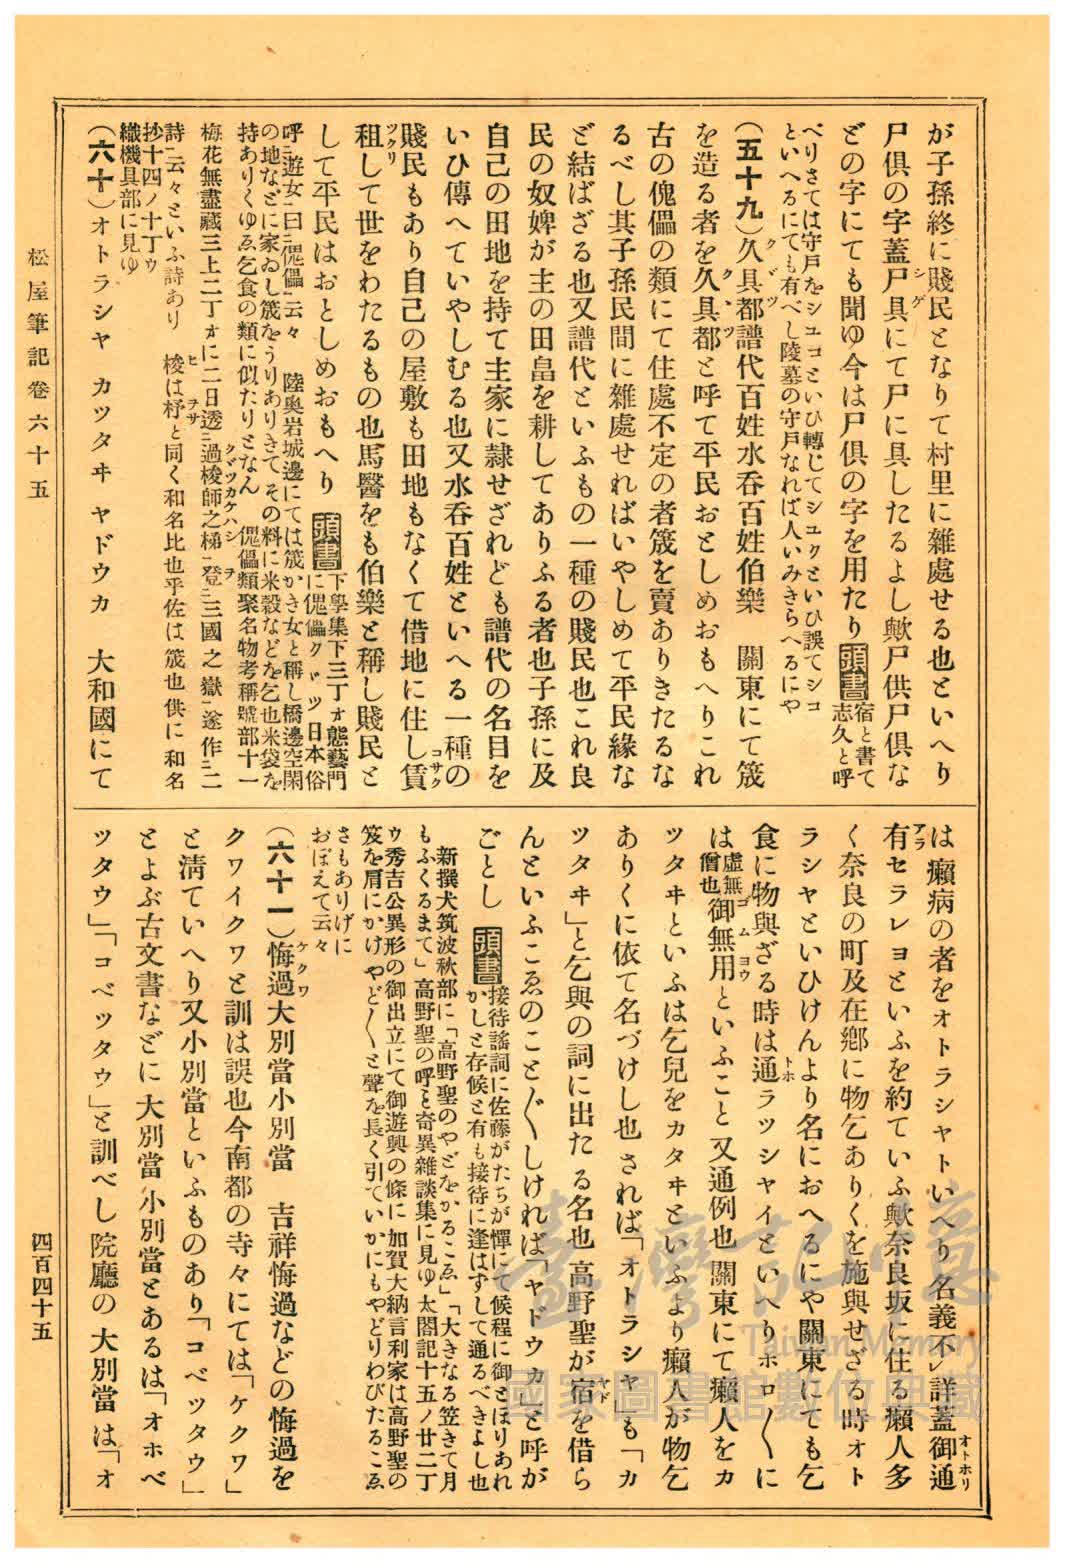 が子孫終に賤民となりて村里に雜處せる也といへり
尸倶の字蓋尸具にて尸に具したるよし歟尸供尸倶な
どの字にても聞ゆ今は尸倶の字を用たり頭書宿と書て志久と呼
べりさては守戸をシユコといひ轉じてシユクといひ誤てシコ
といへるにても有べし陵墓の守戸なれば人いみきらへるにや
(五十九)久具都譜代百姓水呑百姓伯樂 關東にて筬
を造る者を久具都と呼て平民おとしめおもへりこれ
古の傀儡の類にて住處不定の者筬を賣ありきたるな
るべし其子孫民間に雜處せればいやしめて平民緣な
ど結ばざる也又譜代といふもの一種の賤民也これ良
民の奴婢が主の田畠を耕してありふる者也子孫に及
自己の田地を持て主家に隷せざれども譜代の名目を
いひ傳へていやしむる也又水呑百姓といへる一種の
賤民もあり自己の屋敷も田地もなくて借地に住し賃
租して世をわたるもの也馬醫をも伯樂と稱し賤民と
して平民はおとしめおもへり頭書下學集下三丁ォ態藝門
に傀儡クヾツ日本俗
呼遊女曰傀儡云々 陸奥岩城邊にては筬かき女と稱し橋邊空閑
の地などに家ゐし筬をうりありきてその料に米穀などを乞也米袋を
持ありくゆゑ乞食の類に似たりとなん 傀儡類聚名物考稱號部十一
梅花無盡藏三上二丁ォに二日透過梭師之梯登三國之嶽遂作二
詩云々といふ詩あり 梭は杼と同く和名比也乎佐は筬也供に和名
抄十四ノ十丁ゥ
織機具部に見ゆ
(六十)オトラシヤ カツタヰ ヤドウカ 大和國にて
は癩病の者をオトラシヤトいへり名義不詳蓋御通
有セラレヨといふを約ていふ歟奈良坂に住る癩人多
く奈良の町及在鄕に物乞ありくを施與せざる時オト
ラシヤといひけんより名におへるにや關東にても乞
食に物與ざる時は通ラツシヤイといへりホロ〱に
は虛無僧也御無用といふこと又通例也關東にて癩人をカ
ツタヰといふは乞兒をカタヰといふより癩人が物乞
ありくに依て名づけし也されば「オトラシヤ」も「カ
ツタヰ」と乞與の詞に出たる名也高野聖が宿を借ら
んといふこゑのこと〲しければ「ヤドウカ」と呼が
ごとし 頭書接待謠詞に佐藤がたちが憚にて候程に御とほりあれ
かしと存候と有も接待に逢はずして通るべきよし也
新撰犬筑波秋部に「高野聖のやどをかるこゑ」「大きなる笠きて月
もふくるまて」高野聖の呼と奇異雜談集に見ゆ太閤記十五ノ廿二丁
ゥ秀吉公異形の御出立にて御遊興の條に加賀大納言利家は高野聖の
笈を肩にかけやど〱と聲を長く引ていかにもやどりわびたるこゑ
さもありげに
おぼえて云々
(六十一)悔過大別當小別當 吉祥悔過などの悔過を
クワイクワと訓は誤也今南都の寺々にては「ケクワ」
と淸ていへり又小別當といふものあり「コベツタウ」
とよぶ古文書などに大別當小別當とあるは「オホベ
ツタウ」「コベツタゥ」と訓べし院廳の大別當は「オ
松屋筆記卷六十五
四百四十五
臺灣記憶
Taiwan Memory
國家圖書館數位典藏